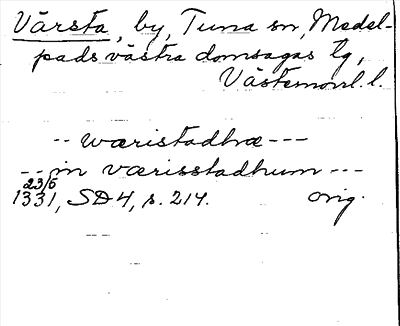 Värsta, by, Tuna sn, Medel-
pads västra domsagas tg,
Västernorrl. l.
-- wæristadhæ ---
-- in værisstadhum ---
23/5
1331, SD 4, s. 214. orig.